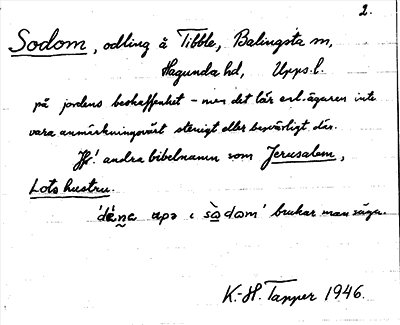 2.
Sodom, odling å Tibble, Balingsta sn,
Hagunda hd, Upps. l.
på jordens beskaffenhet – men det lär enl. ägaren inte
vara anmärkningsvärt stenigt eller besvärligt där.
Jfr! andra bibelnamn som Jerusalem,
Lots hustru.
upa i sodom' brukar man säga.
K.-H. Tapper 1946.